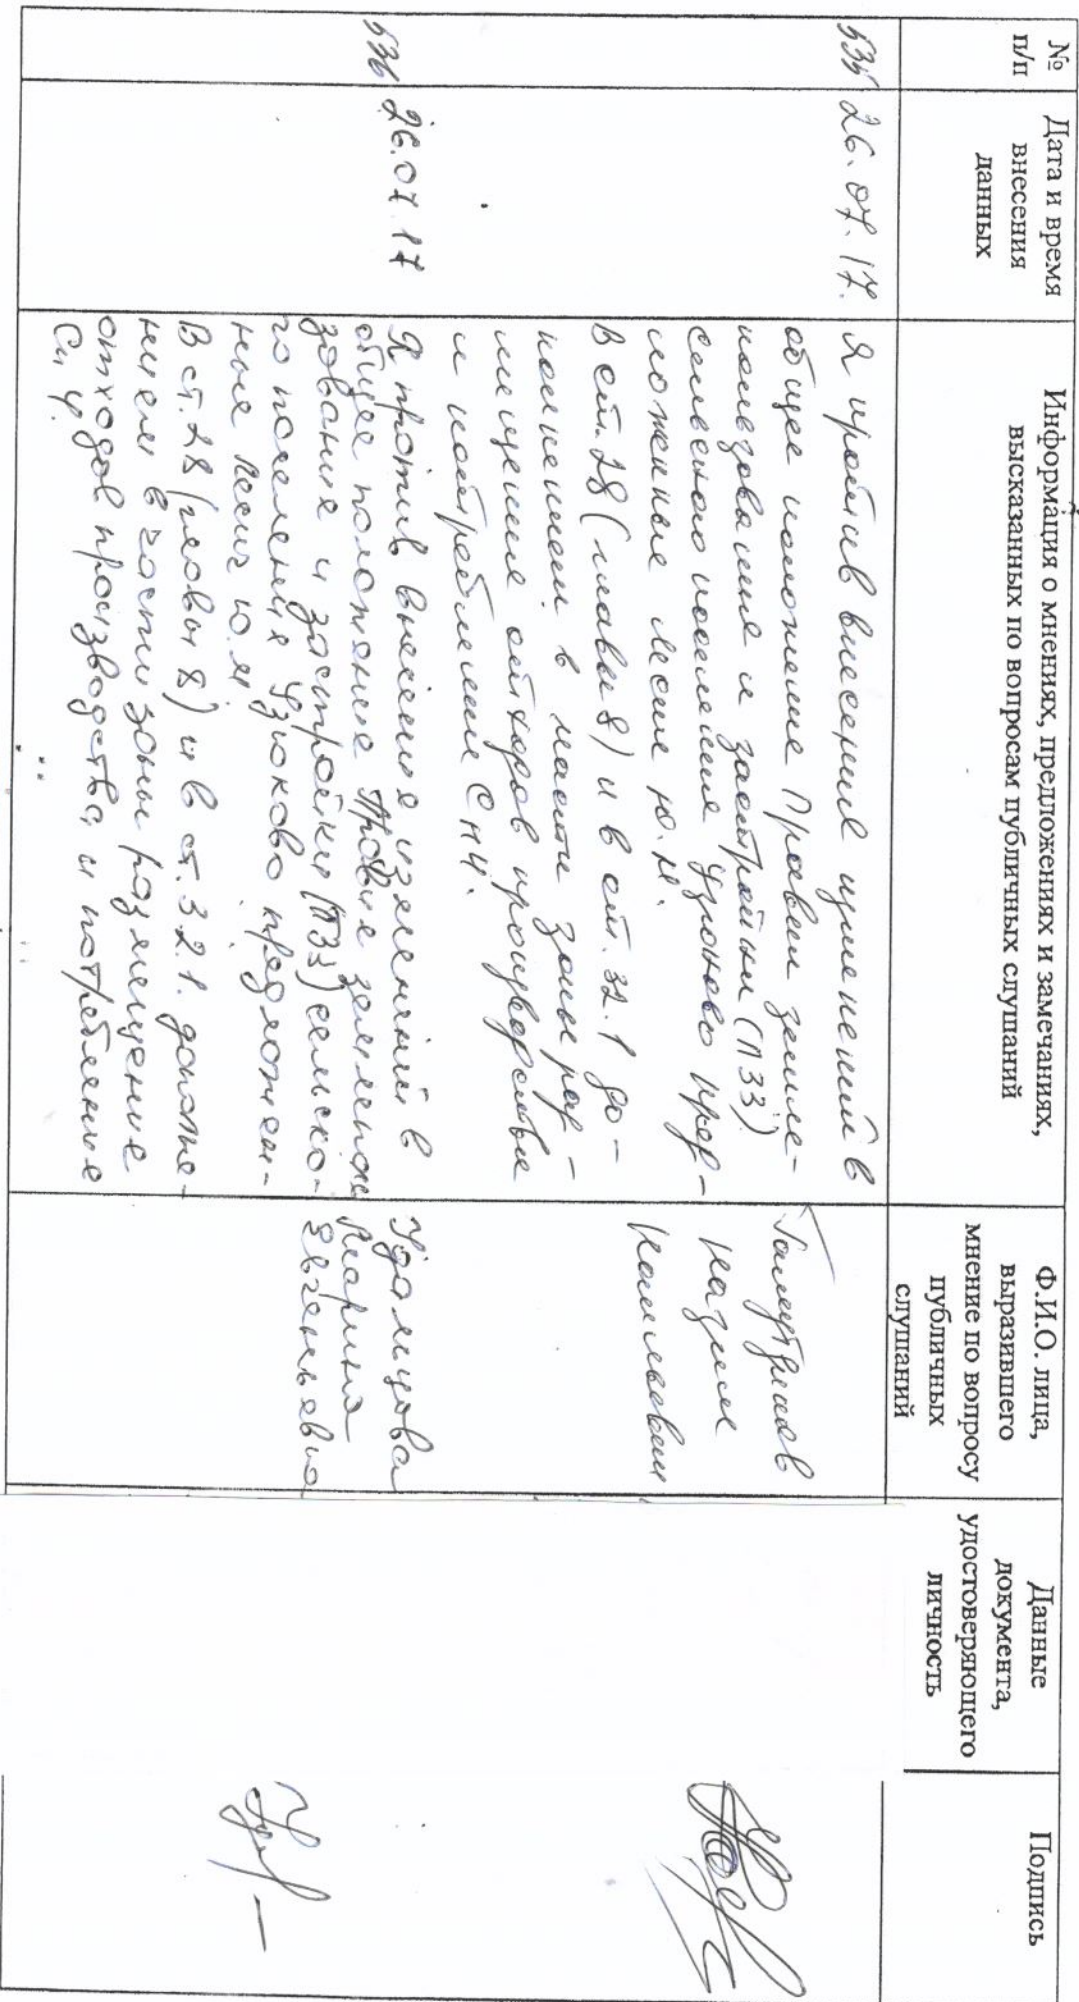 №
п/п
Дата и время
внесения
данных
Информация о мнениях, предложениях и замечаниях,
высказанных по вопросам публичных слушаний
Ф.И.О. лица,
выразившего
мнение по вопросу
публичных
слушаний
Данные
документа,
удостоверяющего
личность
Подпись
535
26.07.17.
Я против внесения изменений в
общее положение Правил земле-
пользования и застройки (ПЗЗ)
сельского поселения Узюково пред-
ложенные Лесик Ю.Н.
В ст. 28 (главы 8) и в ст. 32.1 до-
полнением в части зоны раз-
мещения отходов производства
и потребления СН4.
Назим
536
26.07.17
Я против внесения изменений в
общее положение Правил землеполь
зования и застройки (ПЗ) сельско-
го поселения Узюково предложен-
ные Лесик Ю.Н.
В ст. 28 (главы 8) и в ст. 32.1. дополне-
нием в части зоны размещение
отходов производства и потребление
Сн 4.
Удальцова
Марина
Евгеньевна